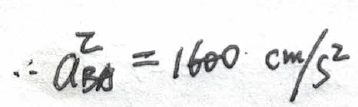 ∴ a^τ_BA = 1600 cm/s²